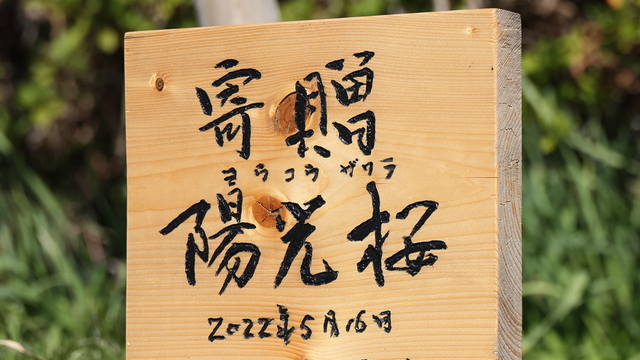 寄贈
ヨウコウザクラ
陽光桜
2022年5月16日